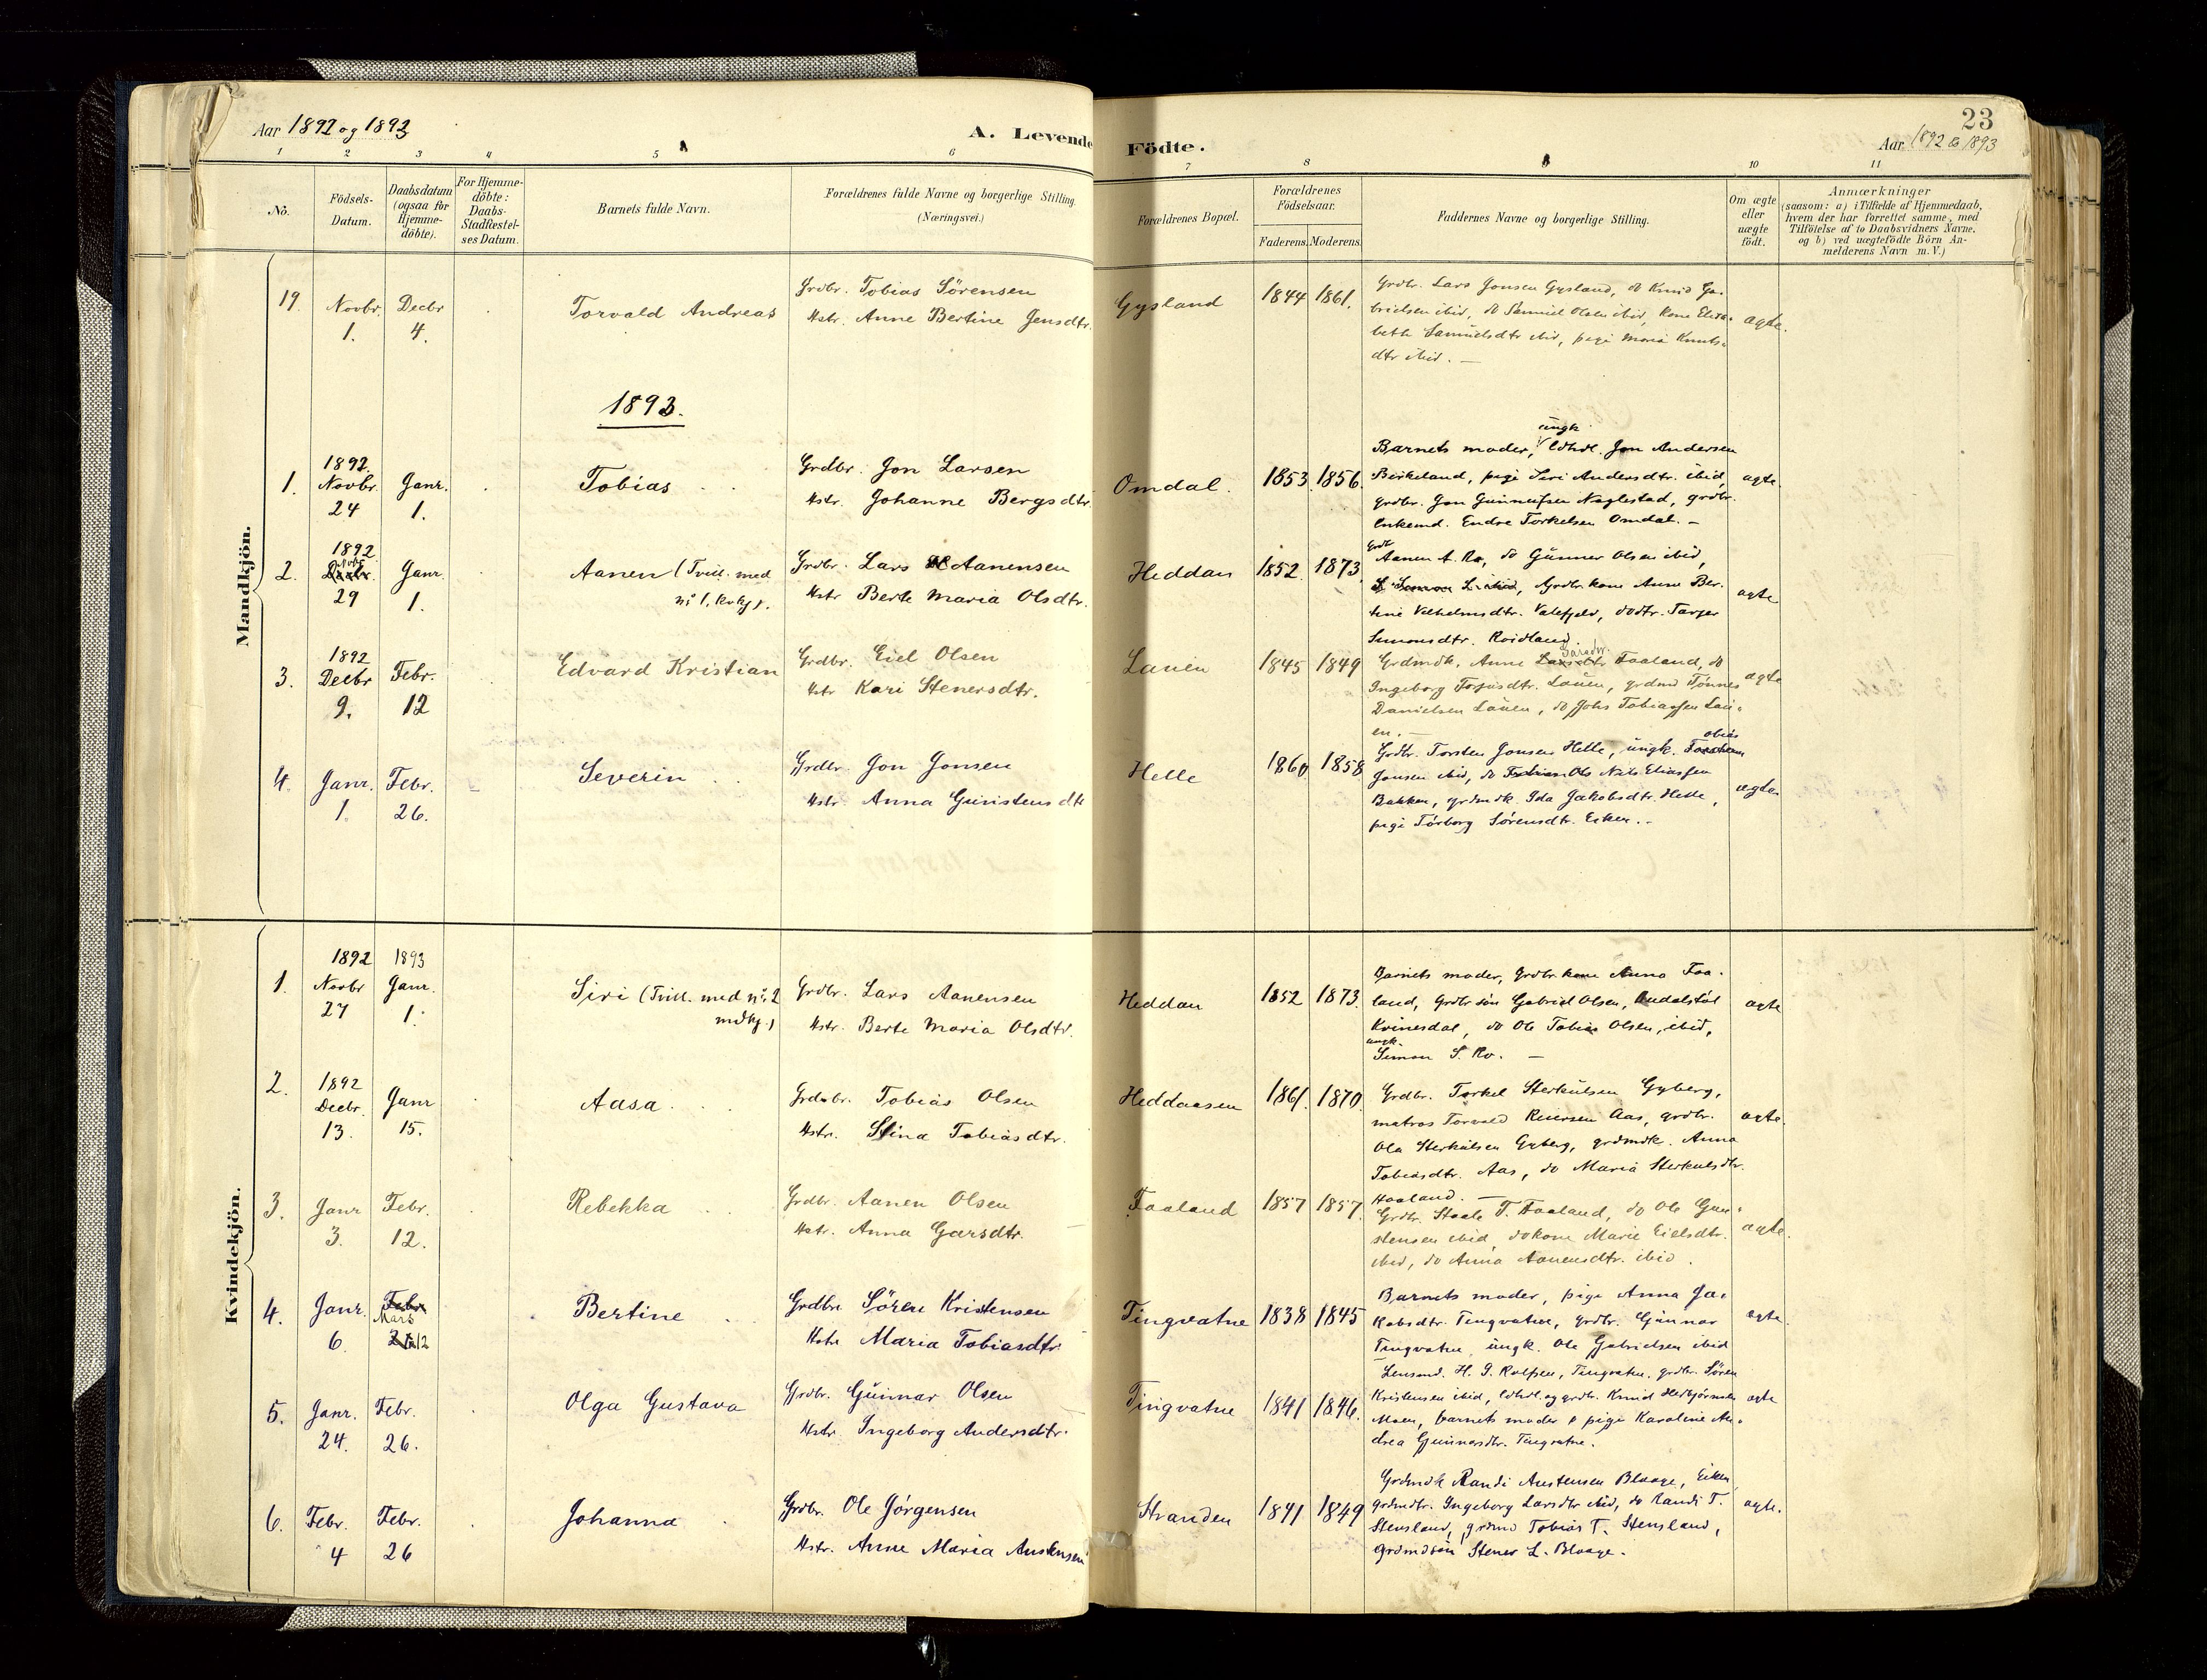 Aar 1892 og 1893
A. Levende Födte.
23
Aar 1892 & 1893
1 2 3 4 5 6 7 8 9 10 11
No.
Födsels-
Datum.
Daabsdatum
(ogsaa for
Hjemme-
döbte).
For Hjemme-
döbte:
Daabs-
Stadfæstel-
ses Datum.
Barnets fulde Navn.
Forældrenes fulde Navne og borgerlige Stilling.
(Næringsvei.)
Forældrenes Bopæl.
Forældrenes
Födselsaar.
Faderens. Moderens.
Faddernes Navne og borgerlige Stilling.
Om ægte
eller
uægte
födt.
Anmærkninger
(saasom: a) i Tilfælde af Hjemmedaab,
hvem der har forrettet samme, med
Tilföielse af to Daabsvidners Navne,
og b) ved uægtefödte Börn An-
melderens Navn m.V.)
Mandkjön.
19.
Novbr.
1.
Decbr
4.
Torvald Andreas
Grdbr. Tobias Sörensen
Hstr. Anne Bertine Jensdtr.
Gysland
1844 1861.
Grdbr. Lars Jonsen Gysland, do Knud Ga-
brielsen ibid, do Samuel Olsen ibid, kone Elisa-
beth Samuelsdtr ibid, pige Maria Knuts-
dtr ibid. —
ægte.
1893.
1.
1892.
Novbr.
24
Janr.
1.
Tobias
Grdbr. Jon Larsen
Hstr. Johanne Bergsdtr.
Omdal.
1853. 1856.
ungk.
Barnets moder, Ldhdl. Jon Andersen
Birkeland, pige Siri Andersdtr. ibid,
grdbr. Jon Gunnufsen Neglestad, grdbr.
Enkemd. Endre Torkelsen Omdal. —
ægte
2.
1892
Novbr
29
Janr.
1.
Aanen (Tvill. med
no 1, kvkj).
Grdbr. Lars Aanensen
Hstr Berte Maria Olsdtr.
Heddan
1852. 1873.
Grdbr
Aanen A. Ro, do Gunner Olsen ibid,
Grdbr. kone Anne Ber-
tine Vilhelmsdtr. Valefjeld, do dtr. Tarjer
Simonsdtr. Roidland.
ægte
3.
1892
Decbr
9.
Febr.
12
Edvard Kristian
Grdbr. Eiel Olsen
Hstr Kari Stenersdtr.
Lauen
1845 1849
Grdmdk. Anne Faaland, do
Ingeborg Tosjusdtr. Lauen, grdmd Tönnes
Danielsen Lauen, do Johs Tobiassen Lau-
en. —
ægte
4.
Janr.
1.
Febr.
26.
Severin
Grdbr. Jon Jonsen
Hstr. Anna Guristensdtr
Helle
1860 1858
Grdbr. Torsten Jonsen Helle, ungk. Tobias
Jonsen ibid, do Nils Eliassen
Bakken, grdmdk. Ida Jakobsdtr. Helle,
pige Torborg Sörensdtr. Eiken. —
ægte.
Kvindekjön.
1.
1892
Novbr
27
1893
Janr.
1.
Siri (Tvill. med no 2
mdkj.)
Grdbr. Lars Aanensen
Hstr. Berte Maria Olsdtr.
Heddan
1852 1873.
Barnets moder, Grdbr. kone Anna Faa-
land, Grdbr sön Gabriel Olsen,
Kvinesdal, do Ole Tobias Olsen, ibid,
ungk.
Simon S. Ro. —
ægte
2.
1892
Decbr.
13.
Janr
15.
Aasa
Grdbr. Tobias Olsen
Hstr. Stina Tobiasdtr.
Heddaasen
1861. 1870.
Grdbr. Torkel Sterkulsen Gyberg,
matros Torvald Reiersen Aas, grdbr.
Ola Sterkulsen Gyberg, grdmdk. Anna
Tobiasdtr. Aas, do Maria Sterkulsdtr.
Haaland. —
ægte.
3.
Janr
3.
Febr.
12.
Rebekka
Grdbr. Aanen Olsen
Hstr. Anna Garsdtr.
Faaland
1857 1857.
Grdbr. Staale T. Faaland, do Ole Gun-
stensen ibid, do kone Marie Eielsdtr.
ibid, do Anna Aanensdtr. ibid.
ægte.
4.
Janr.
6.
Mars
12
Bertine
Grdbr Sören Kristensen
Hstr Maria Tobiasdtr.
Tingvatne
1838 1845
Barnets moder, pige Anna Ja-
kobsdtr. Tingvatne, grdbr. Gunnar
Tingvatne, ungk. Ole Gabrielsen ibid
ægte
5.
Janr.
24.
Febr.
26.
Olga Gustava
Grdbr. Gunnar Olsen
Hstr. Ingeborg Andersdtr.
Tingvatne
1841 1846.
Lensmd. H. G. Rolfsen, Tingvatn. grdbr. Sören
Kristensen ibid, Ldhdl. og grdbr. Knud Herbjörnsen
Moen, barnets moder & pige Karoline An-
drea Gunnarsdtr. Tingvatne.
ægte
6.
Febr.
4
Febr.
26
Johanna
Grdbr. Ole Jörgensen
Hstr. Anne Maria Austensen
Stranden
1841 1849
Grdmdk Randi Austensen Blaage, Eiken
grdmdtr. Ingeborg Larsdtr ibid, do Randi T.
Stensland, grdmd Tobias T. Stensland,
Grdmdsön Stener L. Blaage.
ægte.